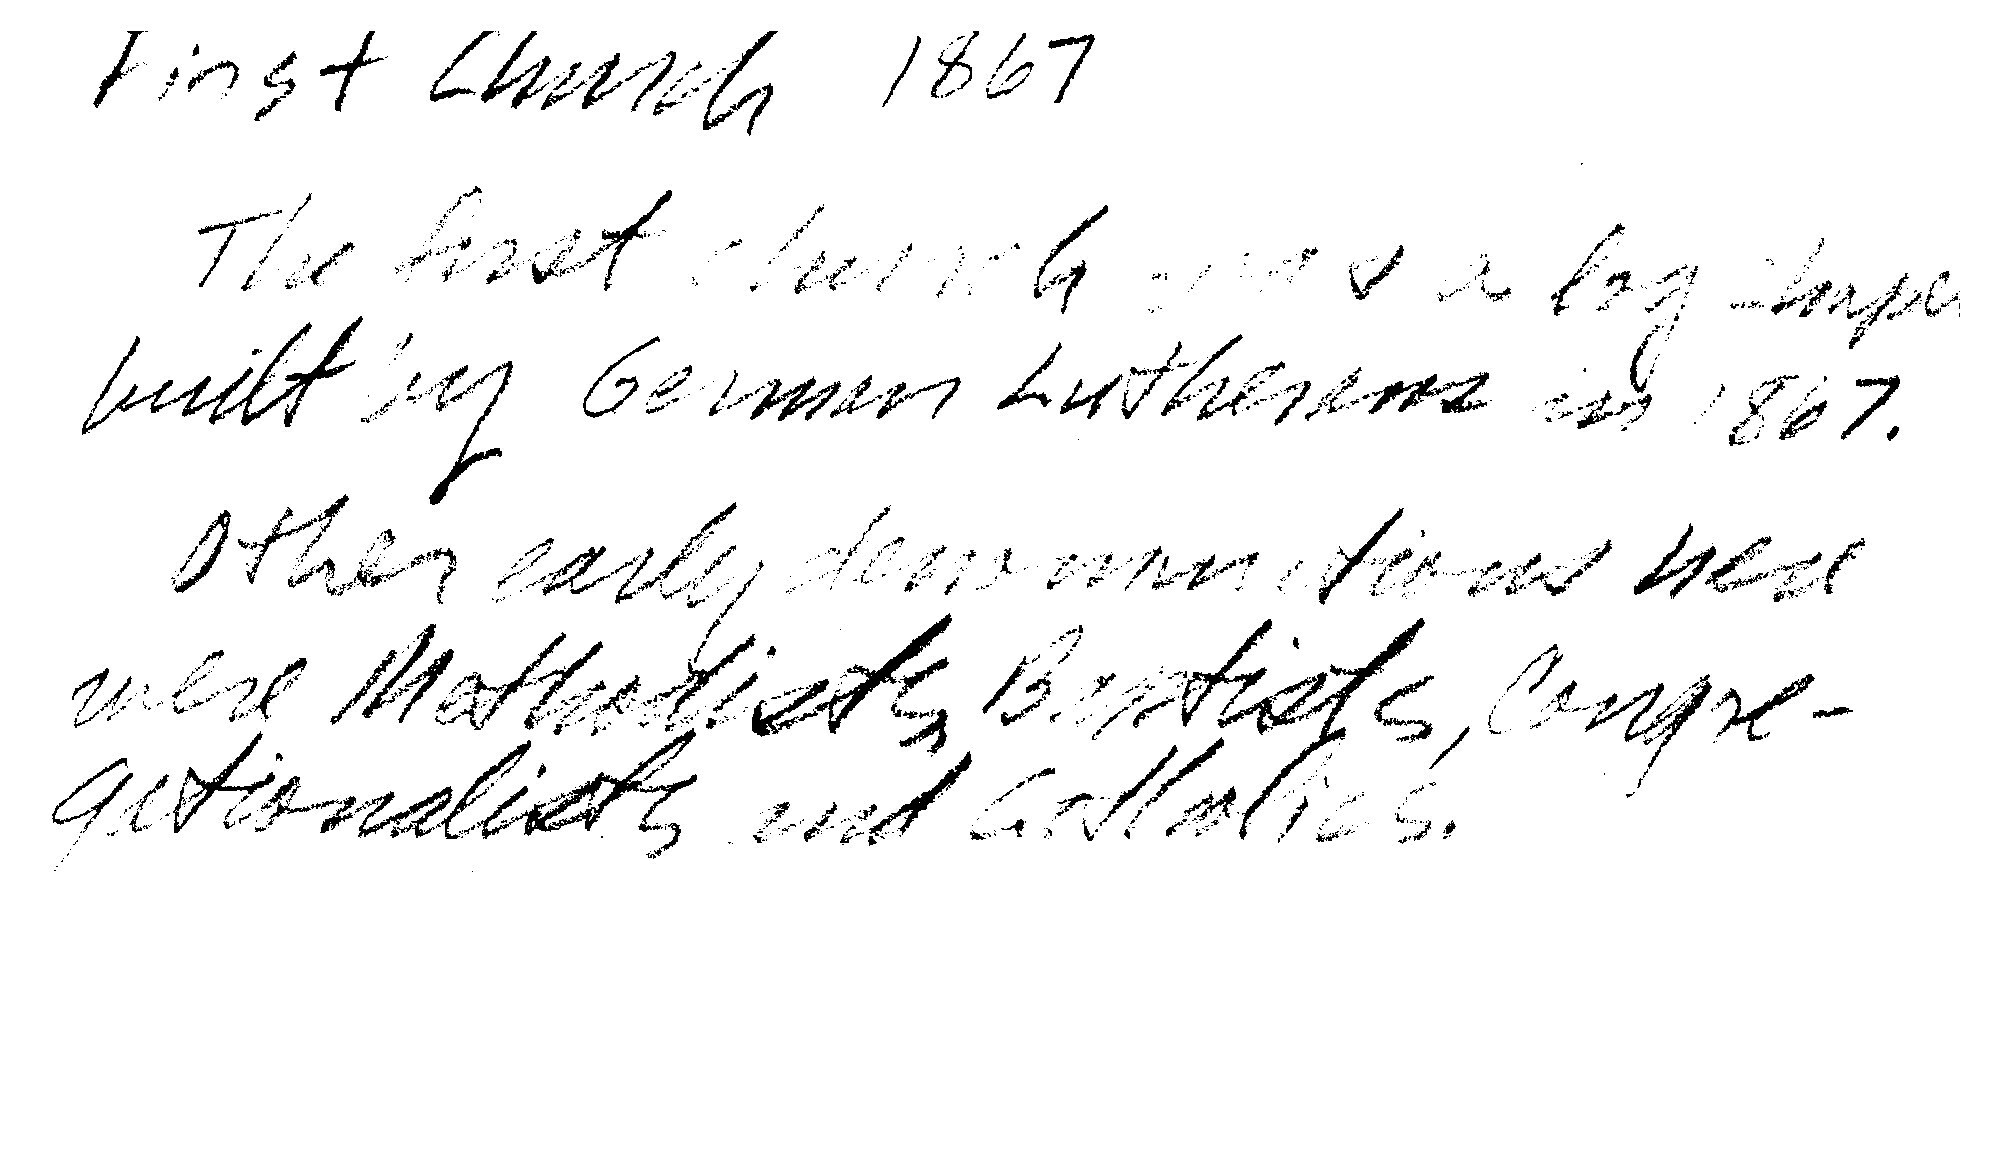 First Church 1867
The first church was a log
built by German Lutherans in 1867.
Other early denominations here
were Methodists, Baptists, Congre-
gationalists and Catholics.